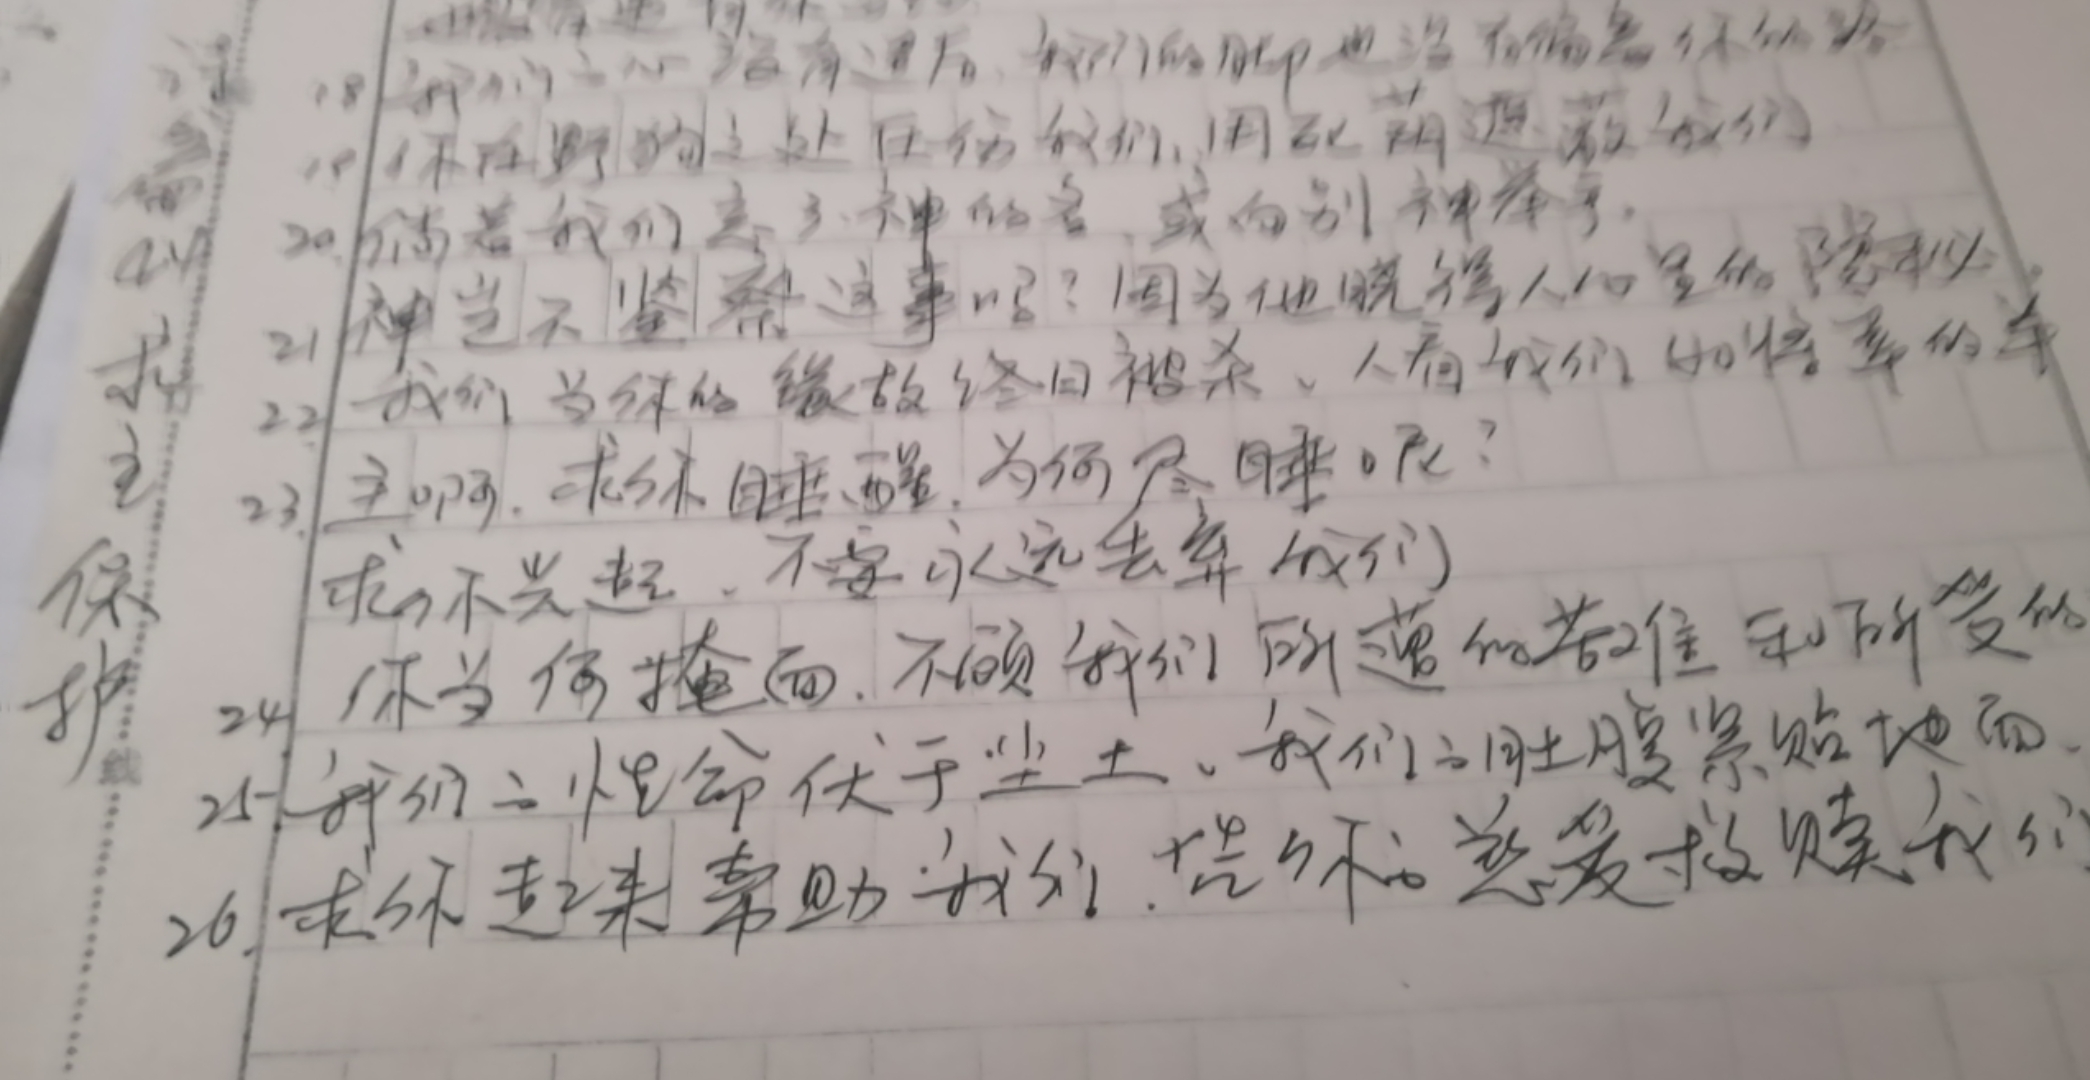 18 我们的心没有退后、我们的脚也没有偏离你的路
19 你在野狗之处压伤我们、用死荫遮蔽我们
20. 倘若我们忘了神的名、或向别神举手。
21 神岂不鉴察这事吗？因为他晓得人心里的隐秘。
22. 我们为你的缘故终日被杀、人看我们如将宰的羊
23. 主啊. 求你睡醒. 为何尽睡呢？
求你兴起、不要永远丢弃我们
24 你为何掩面. 不顾我们所遭的苦难和所受的
25 我们的性命伏于尘土、我们的肚腹紧贴地面、
26. 求你起来帮助我们. 凭你的慈爱救赎我们
求主保护
线